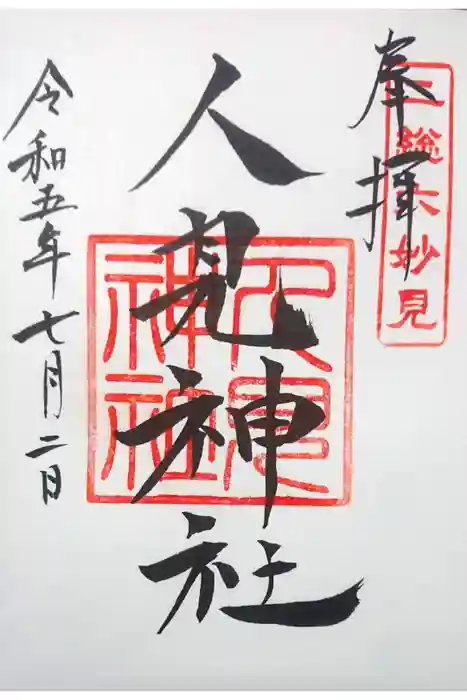 奉拝
二総六妙見
人見神社
人見神社
令和五年七月二日